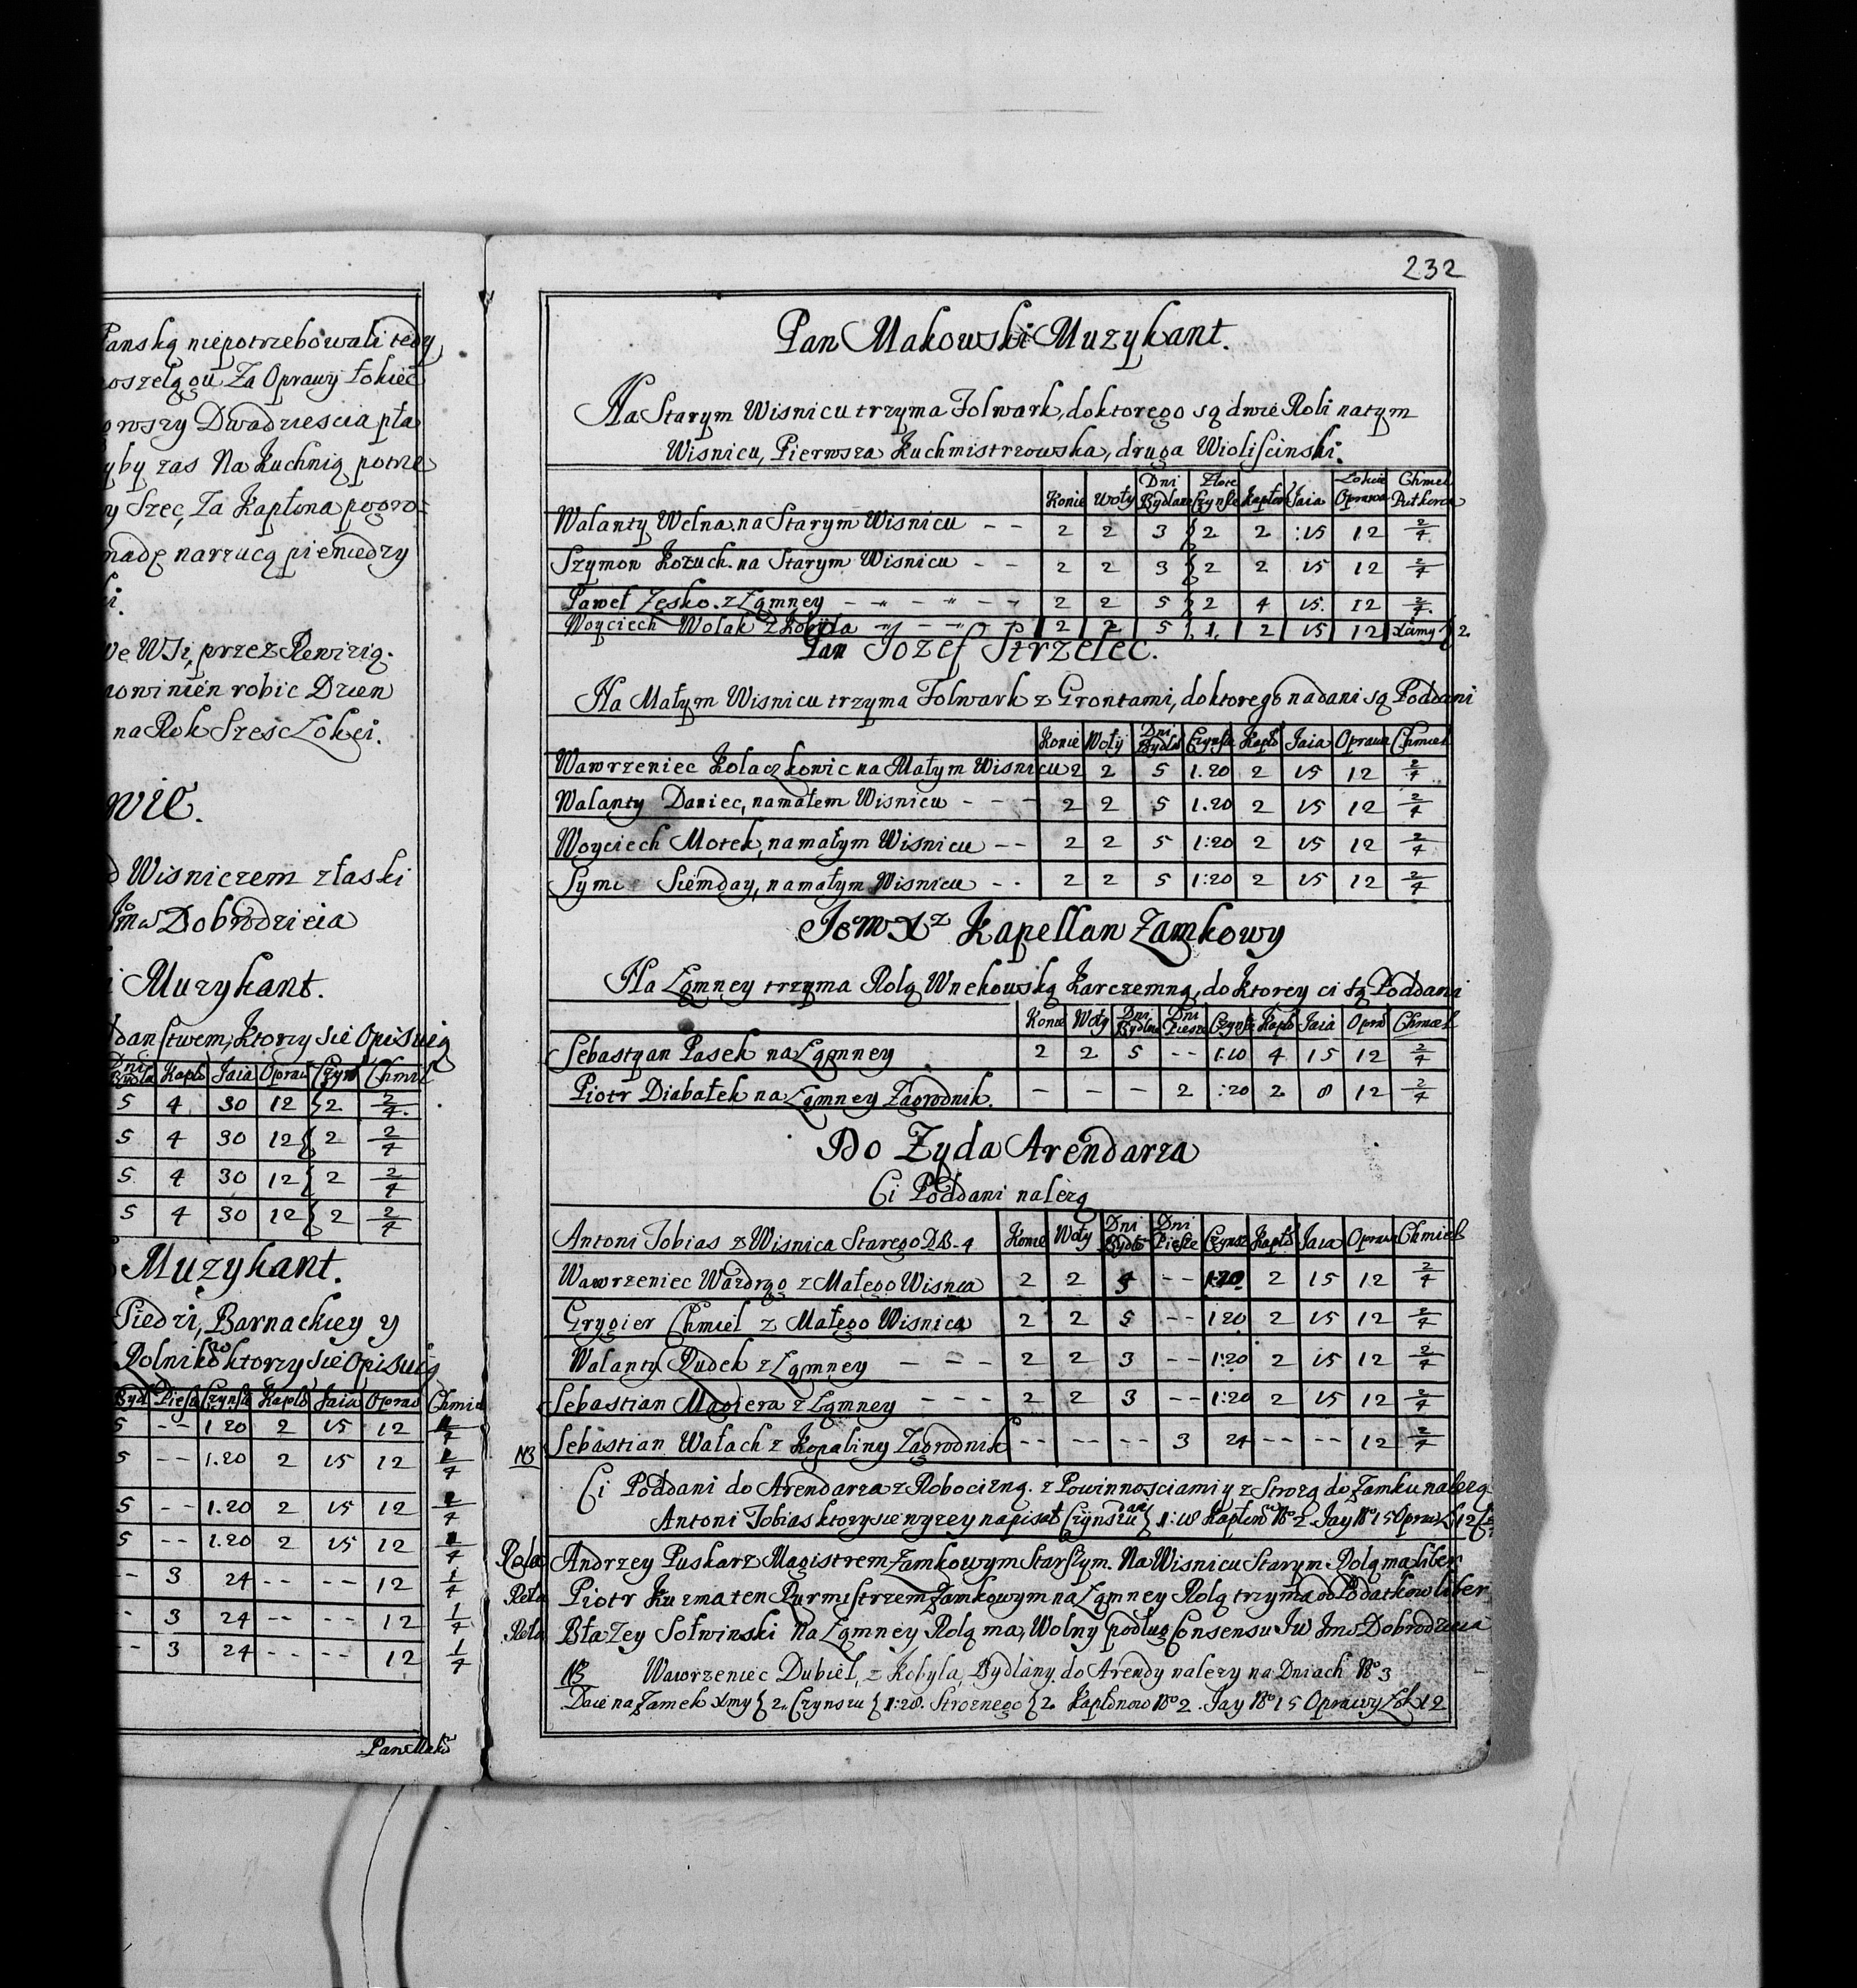 Panską niepotrzebowali tedy
Za Oprawy Łokiec
Dwadziescia pła
zas Na Kuchnią potrze
Szec, Za Kapłona pogro=
narzucą pieniedzy
We Wsi, przez Rewizią.
powinien robic Dzien
na Rok Szesc Łokci.
Wisniczem złaski
Dobrodzieia
Muzykant.
ktorzy sie Opisuią
Dni Bydla Kapło Jaia Opraw Czynsz Chmil
5 4 30 12 } 2 2/4
5 4 30 12 } 2 2/4
5 4 30 12 } 2 2/4
5 4 30 12 } 2 2/4
Muzykant.
Siedzi, Barnackiey y
Rolnikow ktorzy sie Opisuią
Byd Piesz Czynsz Kapło Jaia Opraw Chmiel
5 -- 1.20 2 15 12
5 -- 1.20 2 15 12
5 -- 1.20 2 15 12
5 -- 1.20 2 15 12
-- 3 24 -- -- 12 1/4
-- 3 24 -- -- 12 1/4
-- 3 24 -- -- 12 1/4
Pan Mako
232
Pan Makowski Muzykant.
Na Starym Wisnicu trzyma Folwark, doktorego są dwie Roli natym
Wisnicu, Pierwsza Kuchmistrzowska, druga Wioliscinski.
Konie Woły Dni Bydlane Złote Czynsze Kapłon Jaia Łokcie Oprawa Chmiel
Walanty Welna na Starym Wisnicu -- 2 2 3 } 2 2 :15 12 2/4
Szymon Kozuch. na Starym Wisnicu -- 2 2 3 } 2 2 15 12 2/4
Paweł Zesko. z Łąmney 2 2 5 } 2 4 15. 12 2/4.
Woyciech Wolak z Kobyla 2 2 5 } 1. 2 15 12 xiimy } 2
Pan Jozef Strzelec.
Na Małym Wisnicu trzyma Folwark z Grontami, doktorego nadani są Poddani
Konie Woły Dni Bydlo Czynsz Kapło Jaia Oprawa Chmiel
Wawrzeniec Kolaczkowic na Małym Wisnicu 2 2 5 1.20 2 15 12 2/4
Walanty Daniec, na małem Wisnicu - - - 2 2 5 1.20 2 15 12 2/4
Woyciech Motek, na małym Wisnicu -- 2 2 5 1:20 2 15 12 2/4
Symo Siemday, na małym Wisnicu -- 2 2 5 1:20 2 15 12 2/4
Jemo Xz Kapellan Zamkowy
Na Łąmney trzyma Rolą Wnekowską Karczemną, do ktorey ci są Poddani
Konie Woły Dni Bydlne Dni Piesze Czynsz Kapło Jaia Opraw Chmiel
Sebastyan Pasek na Łąmney 2 2 5 -- 1.10 4 15 12 2/4
Piotr Diabałek na Łąmney Zagrodnik. - - - 2 :20 2 8 12 2/4
Do Zyda Arendarza
Ci Poddani należą
Antoni Tobias z Wisnica Starego DB-4 Konie Woły Dni Bydlo Dni Piesze Czynsz Kapło Jaia Opraw Chmiel
Wawrzeniec Wazdrąg z Małego Wisnica 2 2 -- 1.20 2 15 12 2/4
Grygier Chmiel z Małego Wisnica 2 2 5 -- 1 20 2 15 12 2/4
Walanty Dudek z Łąmney - - - 2 2 3 -- 1:20 2 15 12 2/4
Sebastian Magiera z Łąmney - - - 2 2 3 -- 1:20 2 15 12 2/4
NB Sebastian Wałach z Kopaliny Zagrodnik -- -- -- 3 24 -- -- 12 2/4
Ci Poddani do Arendarza z Robocizną. z Powinnosciami y z Strozą do Zamku nalezą
Antoni Tobias ktory sie wyzey napisał Czynszu } 1:18 Kapłon No 2 Jay No 15 Opraw Ł 12
Rola Andrzey Puskarz Magistrem Zamkowym Starszym. Na Wisnicu Starym Rolą ma liber
Rola Piotr Kuzma ten Burmistrzem Zamkowym na Łąmney Rolą trzyma od Podatkow liber
Rola Błazey Sołwinski Na Łąmney Rolą ma, Wolny podług Consensu Jw Jmo Dobrodzieia
NB Wawrzeniec Dubiel, z Kobyla, Bydlany do Arendy nalezy na Dniach No 3
Daie na Zamek xmy } 2. Czynszu } 1:28. Stroznego } 2 Kapłonow No 2. Jay No 15 Oprawy Łok 12